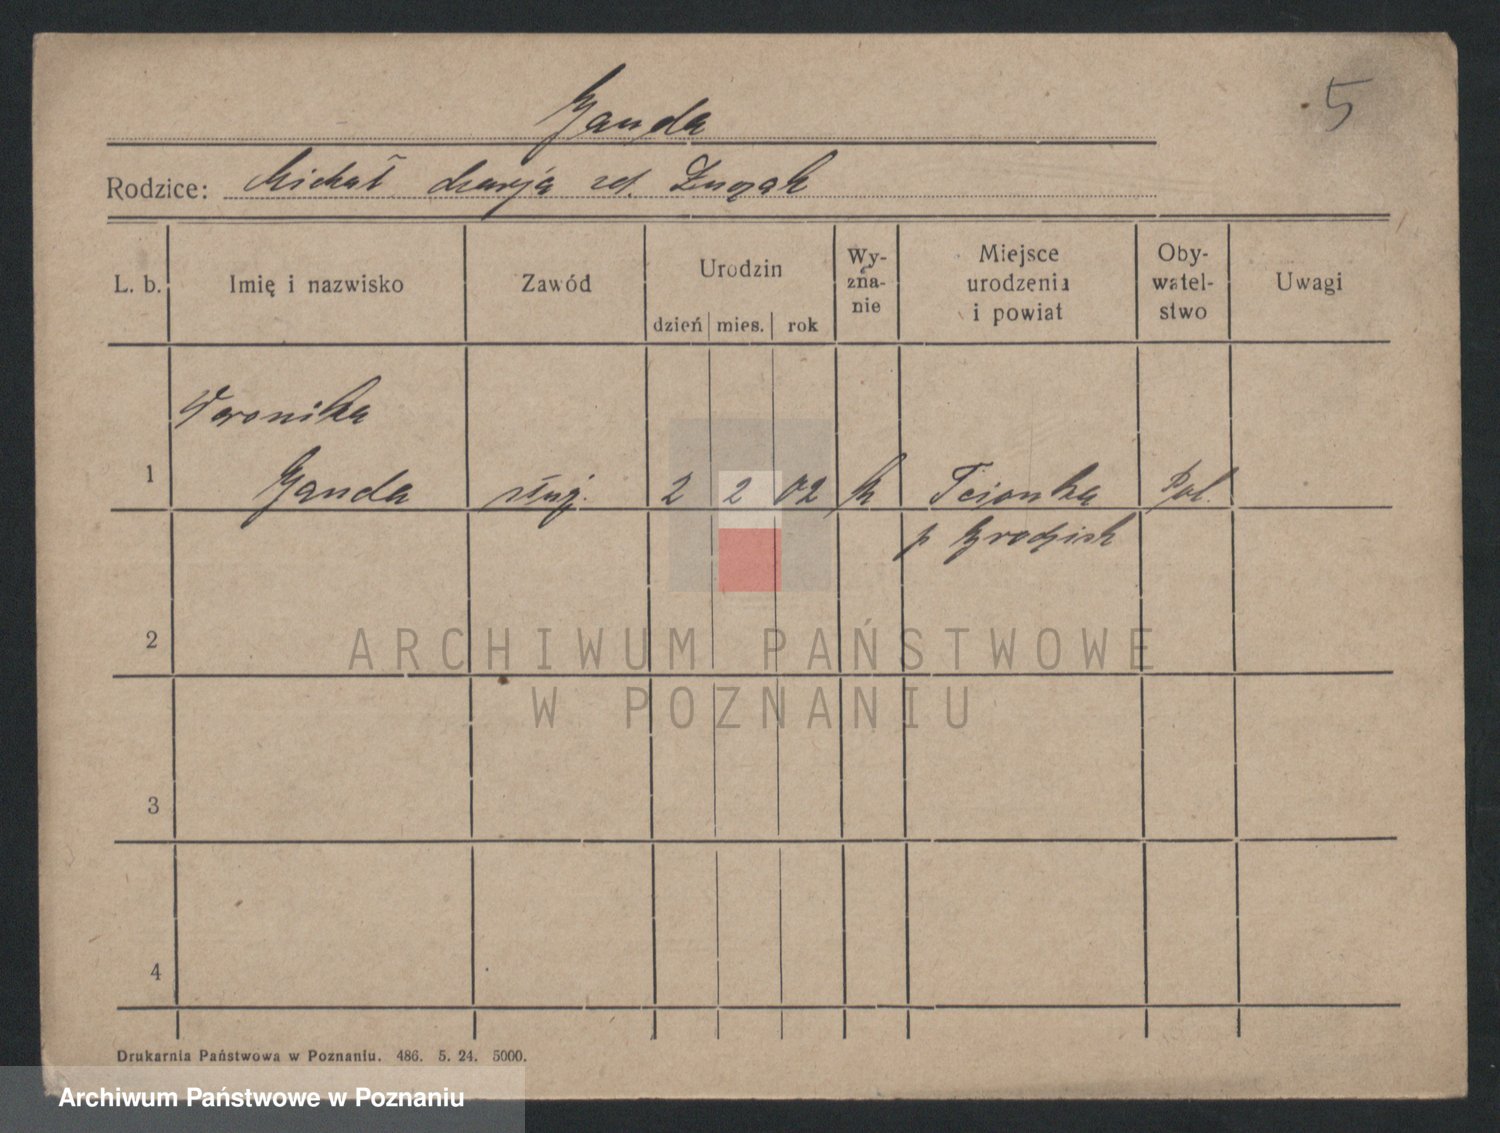 5
Ganda
Rodzice: Michał Marja zd.
L. b. Imię i nazwisko Zawód Urodzin dzień mies. rok Wy-zna-nie Miejsce urodzenia i powiat Oby-watel-stwo Uwagi
Weronika
1 Ganda służ. 2 2 02 k Pol.
p Grodzisk
2
ARCHIWUM PAŃSTWOWE
W POZNANIU
3
4
Drukarnia Państwowa w Poznaniu. 486. 5. 24. 5000.
Archiwum Państwowe w Poznaniu